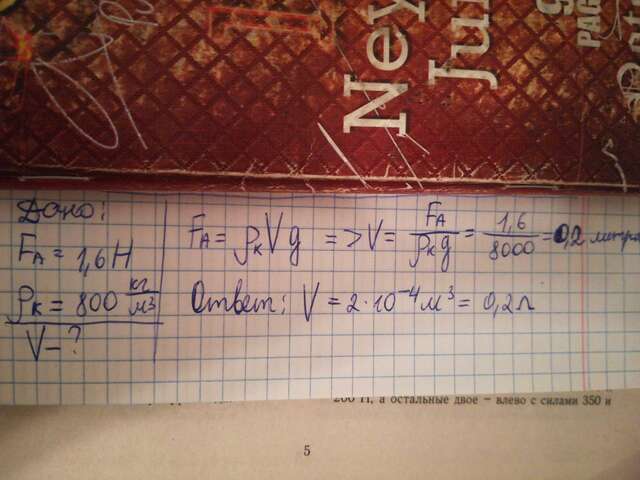 Ney
Ju
PAG
Дано:
F_A = 1,6 Н
ρ_к = 800 кг/м³
V - ?
F_A = ρ_к V g => V = F_A / ρ_к g = 1,6 / 8000 = 0,2 литра
Ответ: V = 2·10⁻⁴ м³ = 0,2 л
200 Н, а остальные двое – влево с силами 350 и
5